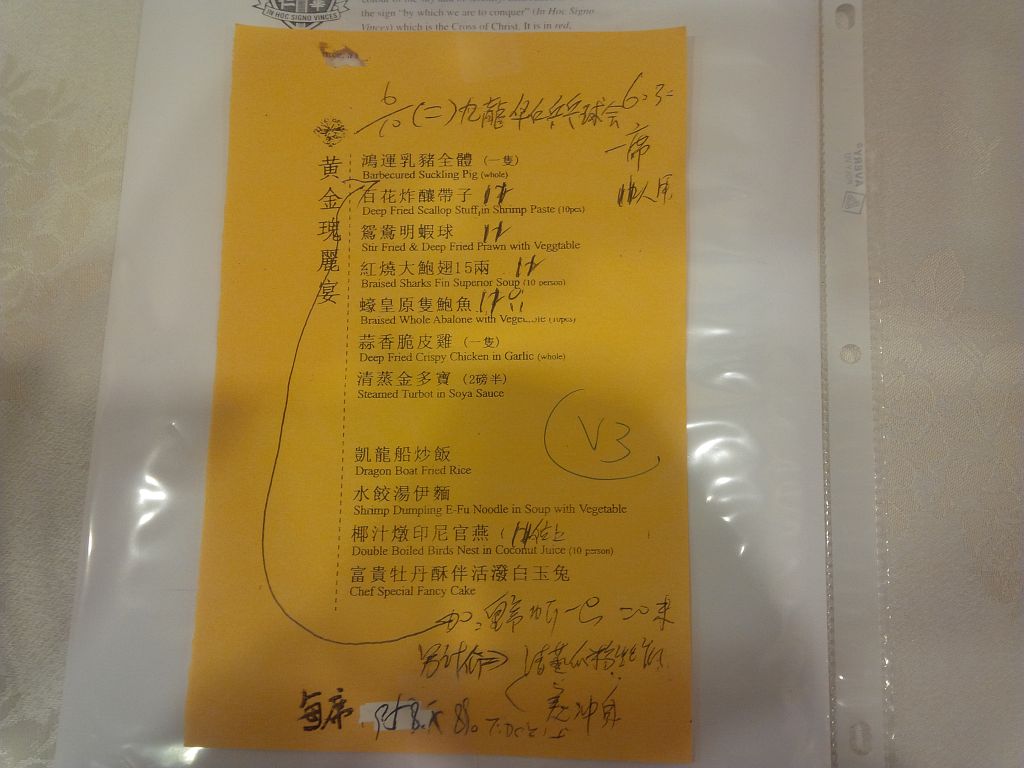 IN HOC SIGNO VINCES
the sign “by which we are to conquer” (In Hoc Signo
Vinces) which is the Cross of Christ. It is in red,
6/10 (二) 九龍 乒乓球会 6:30
一席
黃金瑰麗宴
鴻運乳豬全體 (一隻)
Barbecured Suckling Pig (whole)
百花炸釀帶子 11
Deep Fried Scallop Stuff,in Shrimp Paste (10pcs)
鴛鴦明蝦球 11
Stir Fried & Deep Fried Prawn with Veggtable
紅燒大鮑翅15兩 11
Braised Sharks Fin Superior Soup (10 person)
蠔皇原隻鮑魚 11
Braised Whole Abalone with Vegetable (10pcs)
蒜香脆皮雞 (一隻)
Deep Fried Crispy Chicken in Garlic (whole)
清蒸金多寶 (2磅半)
Steamed Turbot in Soya Sauce
V3
凱龍船炒飯
Dragon Boat Fried Rice
水餃湯伊麵
Shrimp Dumpling E-Fu Noodle in Soup with Vegetable
椰汁燉印尼官燕 (11位上
Double Boiled Birds Nest in Coconut Juice (10 person)
富貴牡丹酥伴活潑白玉兔
Chef Special Fancy Cake
每席